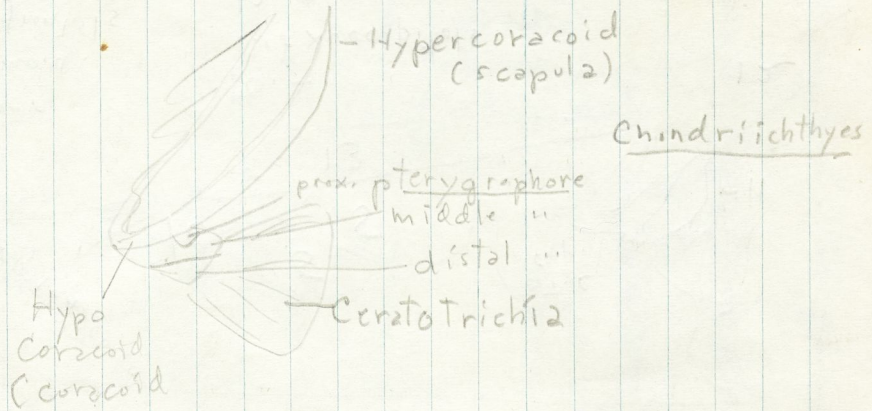 Hypercoracoid
(scapula)
Chondriichthyes
prox. pterygraphore
middle "
distal "
Ceratotrichia
Hypo
Coracoid
(coracoid